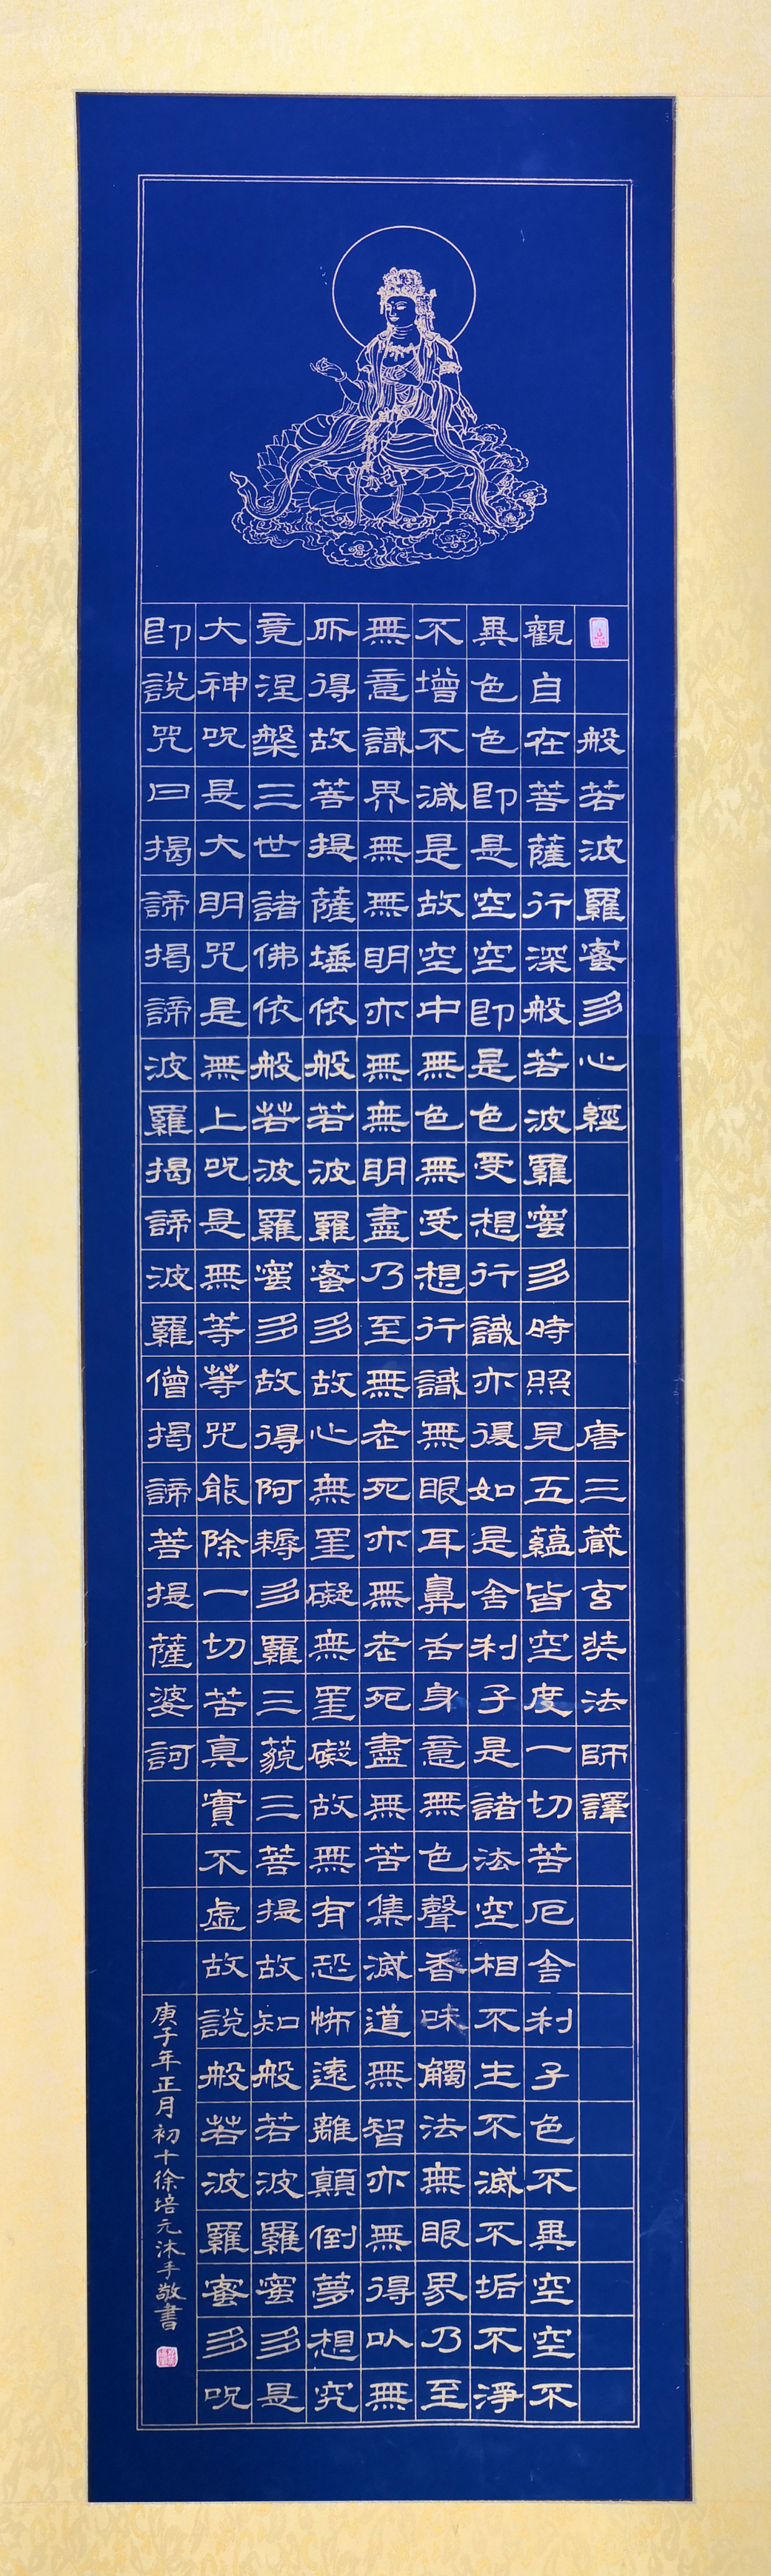 般若波羅蜜多心經 唐三藏玄奘法師譯
觀自在菩薩行深般若波羅蜜多時照見五蘊皆空度一切苦厄舍利子色不異空空不
異色色即是空空即是色受想行識亦復如是舍利子是諸法空相不生不滅不垢不淨
不增不減是故空中無色無受想行識無眼耳鼻舌身意無色聲香味觸法無眼界乃至
無意識界無無明亦無無明盡乃至無老死亦無老死盡無苦集滅道無智亦無得以無
所得故菩提薩埵依般若波羅蜜多故心無罣礙無罣礙故無有恐怖遠離顛倒夢想究
竟涅槃三世諸佛依般若波羅蜜多故得阿耨多羅三藐三菩提故知般若波羅蜜多是
大神呪是大明咒是無上呪是無等等咒能除一切苦真實不虛故說般若波羅蜜多呪
即說咒曰揭諦揭諦波羅揭諦波羅僧揭諦菩提薩婆訶
庚子年正月初十徐培元沐手敬書